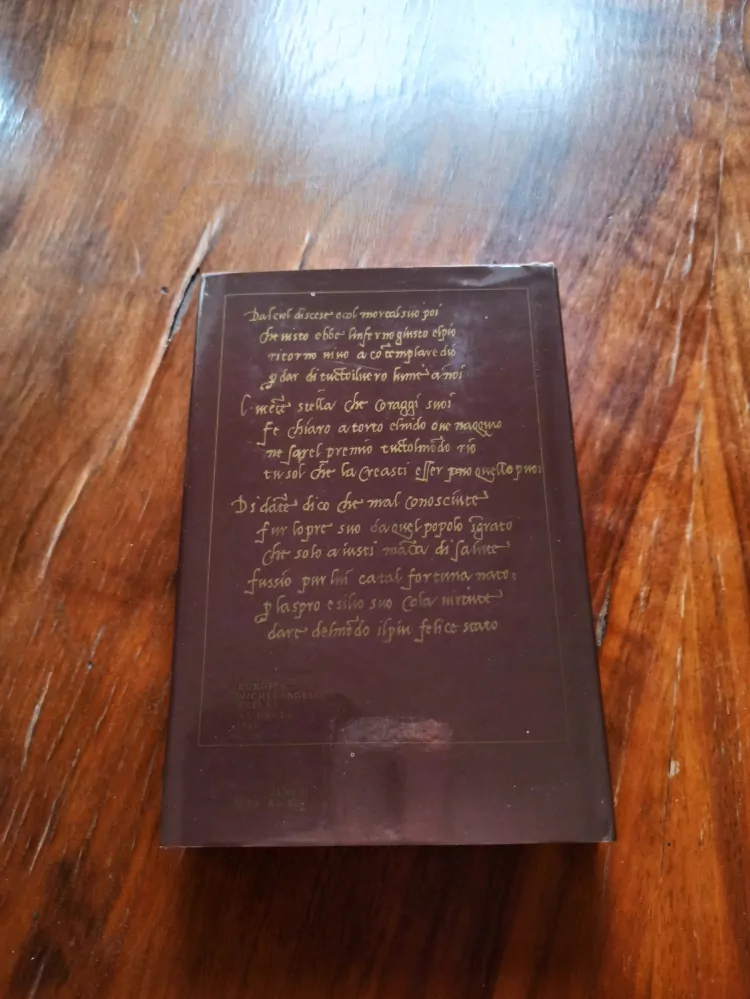 Dalciel discese ecol mortal suo poi
che visto ebbe linferno giusto elpio
ritorno vivo a cōtemplare dio
p dar di tuctoiluero lume a noi
Lucēte stella che coraggi suoi
fe chiaro a torto elnido oue nacqu'io
ne sarel premio tuctolmōdo rio
tu sol che la creasti esser puo quello puoi
Di dāte dico che mal conosciute
fur lopre suo da quel popolo īgrato
che solo a iusti māca di salute
fussio pur lui catal fortuna nato:
p laspro esilio suo cola virtute
dare delmōdo ilpiu felice stato
MICHELANGELO